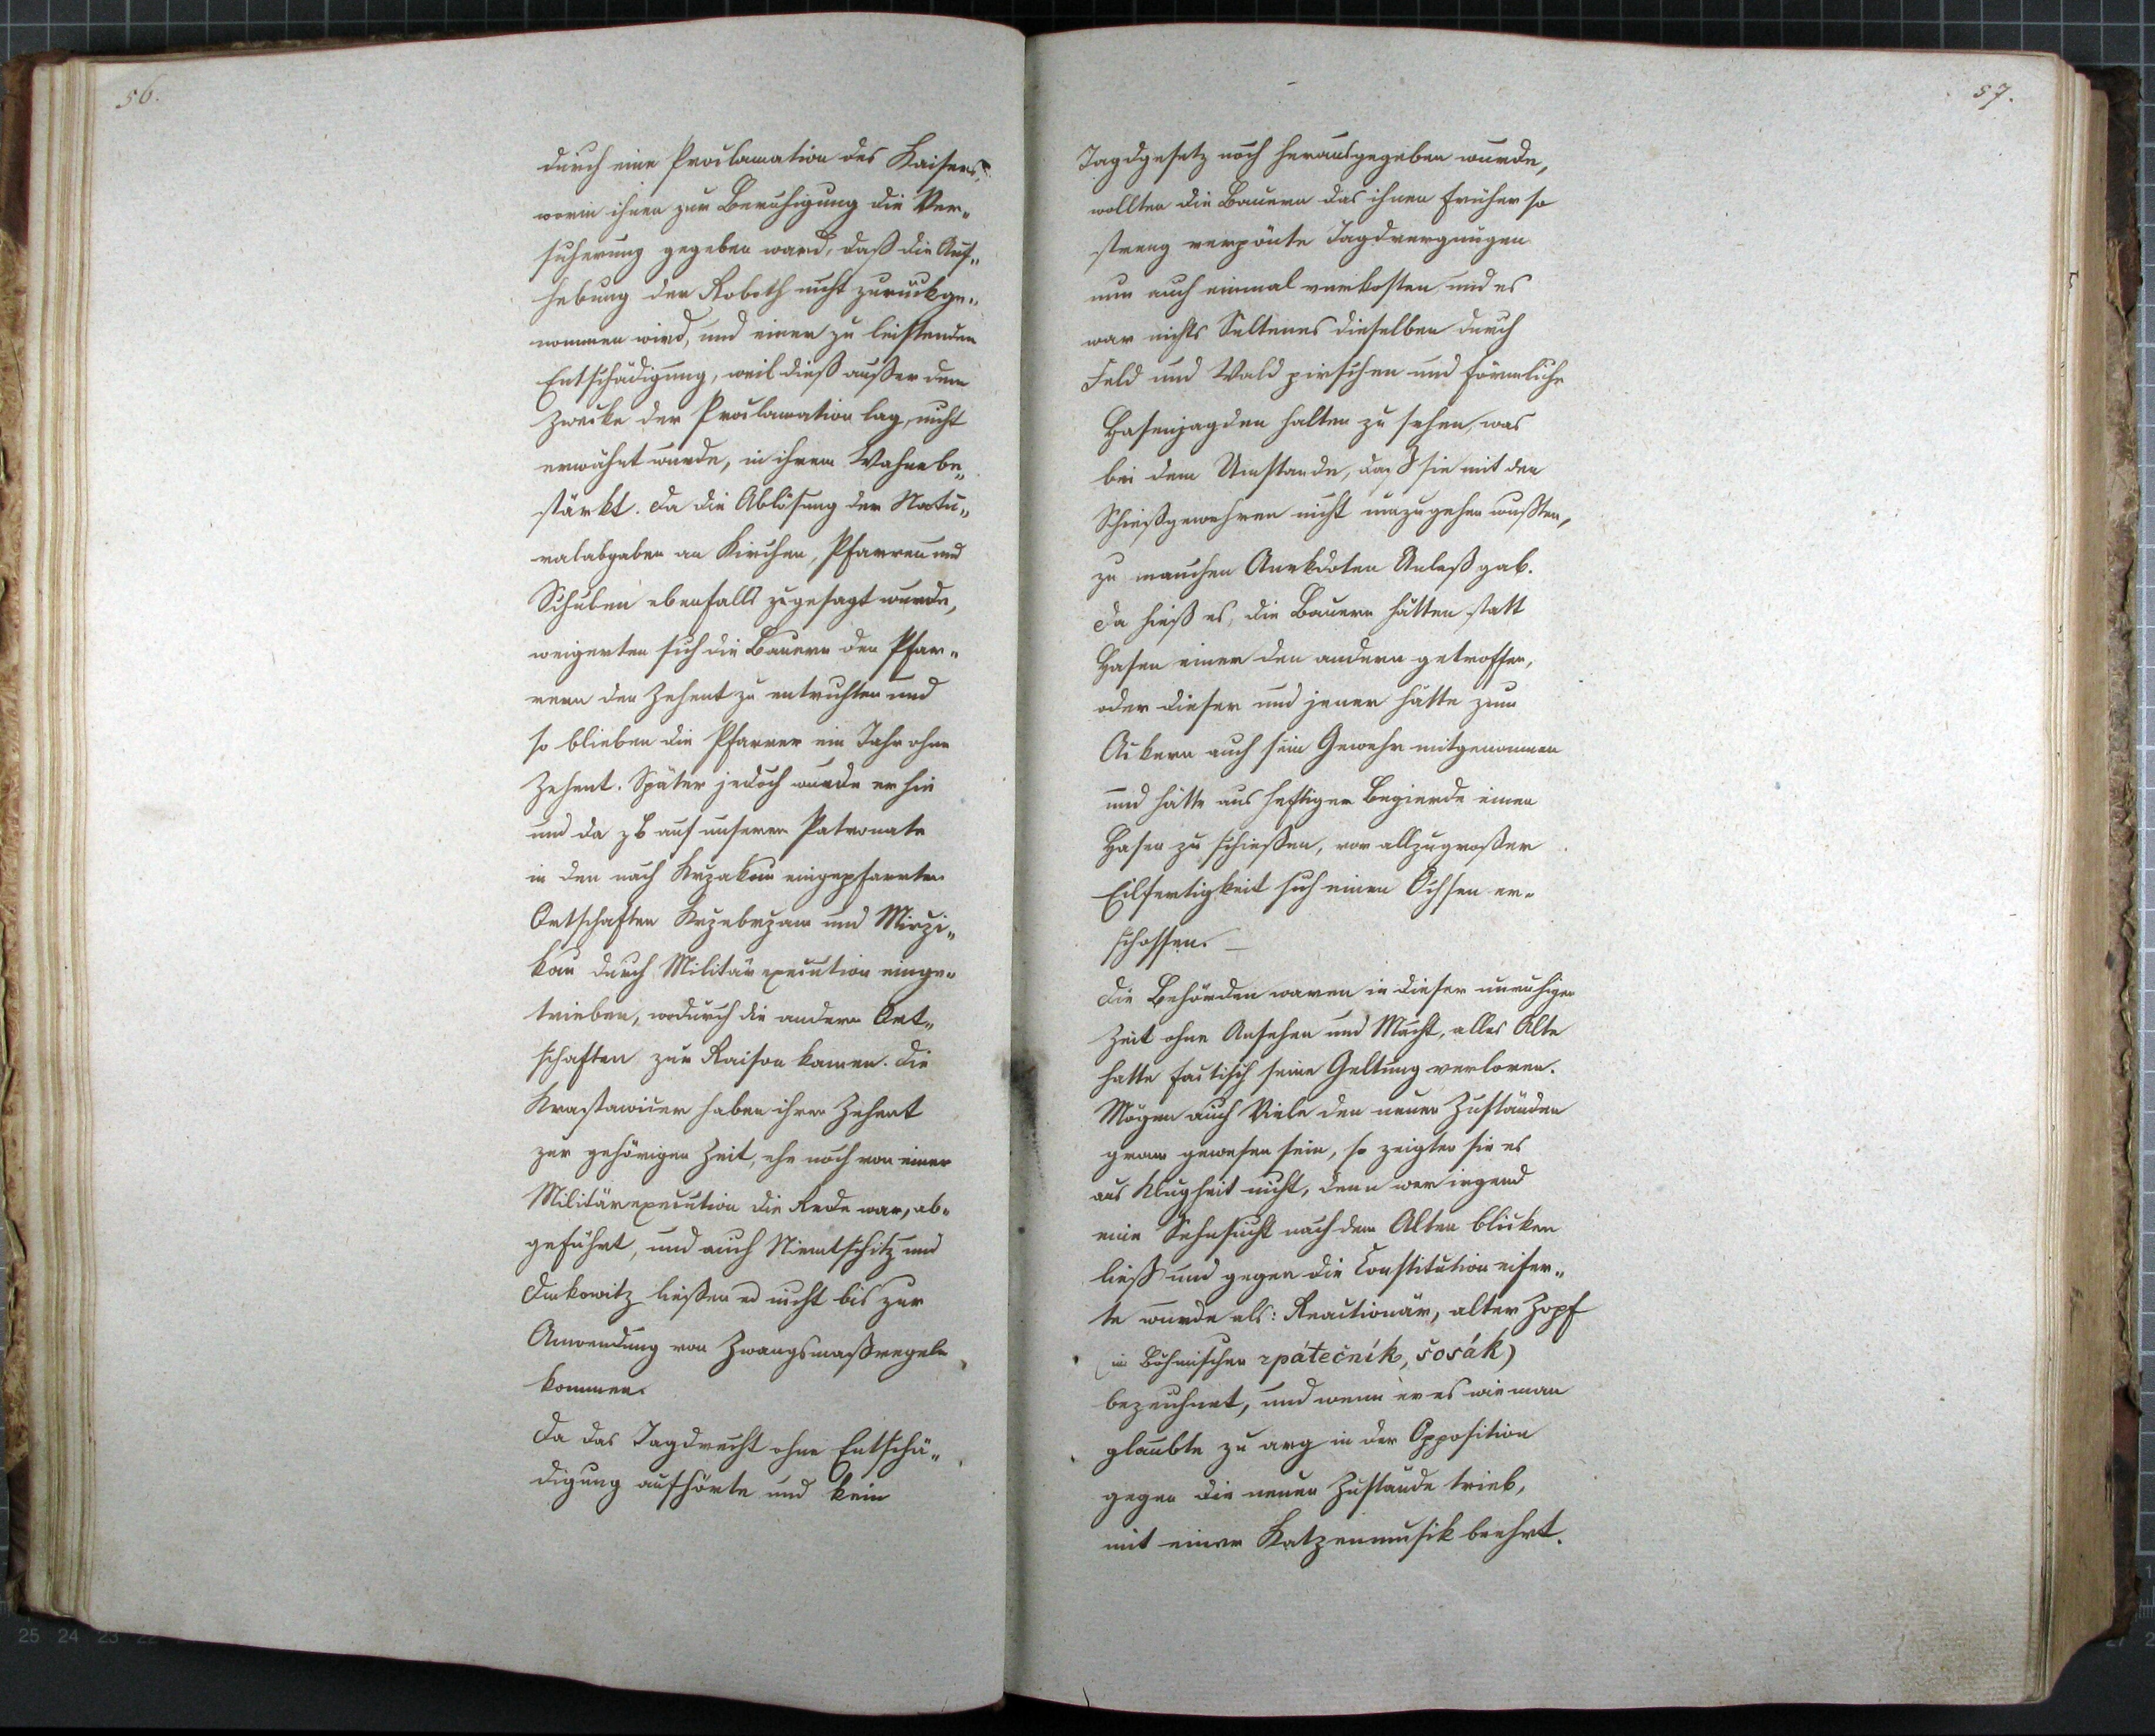 56.
durch eine Proclamation des Kaisers,
worin ihnen zur Beruhigung die Ver„
sicherung gegeben ward, daß die Auf„
hebung der Roboth nicht zurückge„
nommen wird, und einer zu leistenden
Entschädigung, weil dieß außer dem
Zwecke der Proclamation lag, nicht
erwähnt wurde, in ihrem Wahne be„
stärkt. Da die Ablösung der Natu„
ralabgaben an Kirchen, Pfarren und
Schulen ebenfalls zugesagt wurde,
weigerten sich die Bauern den Pfar„
rern den Zehent zu entrichten und
so blieben die Pfarrer ein Jahr ohne
Zehent. Später jedoch wurde er hie
und da zB auf unserem Patronate
in den nach Krzakau eingepfarrten
Ortschaften Krzebrzam und Mirzi„
kau durch Militärexecution einge„
trieben, wodurch die andern Ort„
schaften zur Raison kamen. Die
haben ihren Zehent
zur gehörigen Zeit, ehe noch von einer
Militärexecution die Rede war, ab„
geführt, und auch Niemtschitz und
ließen es nicht bis zur
Anwendung von Zwangsmaßregeln
kommen.
Da das Jagdrecht ohne Entschä„
digung aufhörte und kein
57.
Jagdgesetz noch herausgegeben wurde,
wollten die Bauern das ihnen früher so
streng verpönte Jagdvergnügen
nun auch einmal verkosten und es
war nichts Seltenes dieselben durch
Feld und Wald pirschen und förmliche
Hasenjagden halten zu sehen, was
bei dem Umstande, daß sie mit den
Schießgewehren nicht umzugehen wußten,
zu manchen Anekdoten Anlaß gab.
Da hieß es, die Bauern hätten statt
Hasen einer den andern getroffen,
oder dieser und jener hätte zum
Ackern auch sein Gewehr mitgenommen
und hätte aus heftiger Begierde einen
Hasen zu schießen, vor allzugroßer
Eilfertigkeit sich einen Ochsen er„
schossen. —
Die Behörden waren in dieser unruhigen
Zeit ohne Ansehen und Macht, alles Alte
hatte factisch seine Geltung verloren.
Mögen auch Viele den neuen Zuständen
gram gewesen sein, so zeigten sie es
aus Klugheit nicht, denn wer irgend
eine Sehnsucht nach dem Alten blicken
ließ und gegen die Constitution eifer„
te wurde als: Reactionär, alter Zopf
(im Böhmischen zpátečník, šosák)
bezeichnet, und wenn er es wie man
glaubte zu arg in der Opposition
gegen die neuen Zustände trieb,
mit einer Katzenmusik beehrt.
25 24 23 22